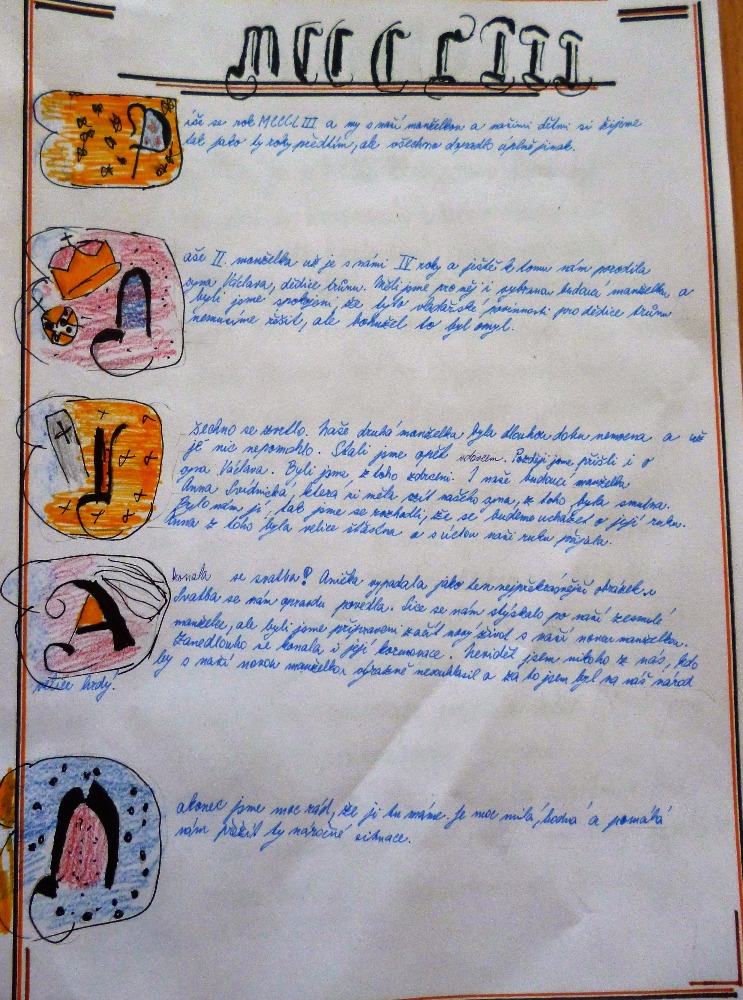 MCCCLIII
íše se rok MCCCLIII a my s naší manželkou a našimi dětmi si žijeme
tak jako ty roky předtím, ale všechno dopadlo úplně jinak.
aše II. manželka už je s námi IV roky a ještě k tomu nám porodila
syna Václava, dědice trůnu. Měli jsme pro něj i vybranou budoucí manželku a
byli jsme spokojeni, že tyto vladařské povinnosti pro dědice trůnu
nemusíme řešit, ale bohužel to byl omyl.
šechno se zvrtlo. Naše druhá manželka byla dlouhou dobu nemocna a už
jí nic nepomohlo. Stali jsme opět vdovcem. Později jsme přišli i o
syna Václava. Byli jsme z toho zdrceni. I naše budoucí manželka
Anna Svídnická, která si měla vzít našeho syna, z toho byla smutna.
Bylo nám jí, tak jsme se rozhodli, že se budeme ucházet o její ruku.
Anna z toho byla velice šťastna a s úctou naši ruku přijala.
konala se svatba? Anička vypadala jako ten nejpřekrásnější obrázek.
Svatba se nám opravdu povedla. Sice se nám stýskalo po naší zesnulé
manželce, ale byli jsme připraveni začít nový život s naší novou manželkou.
Zanedlouho se konala i její korunovace. Neviděl jsem nikoho z nás, kdo
by s naší novou manželkou výrazně nesouhlasil a za to jsem byl na náš národ
velice hrdý!
akonec jsme moc rádi, že ji tu máme. Je moc milá, hodná a pomáhá
nám přežít ty náročné situace.